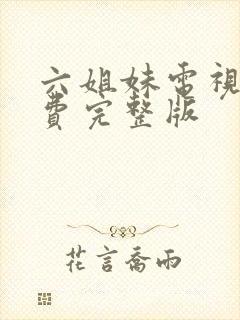 六姐妹電視
費完整版
花言喬雨